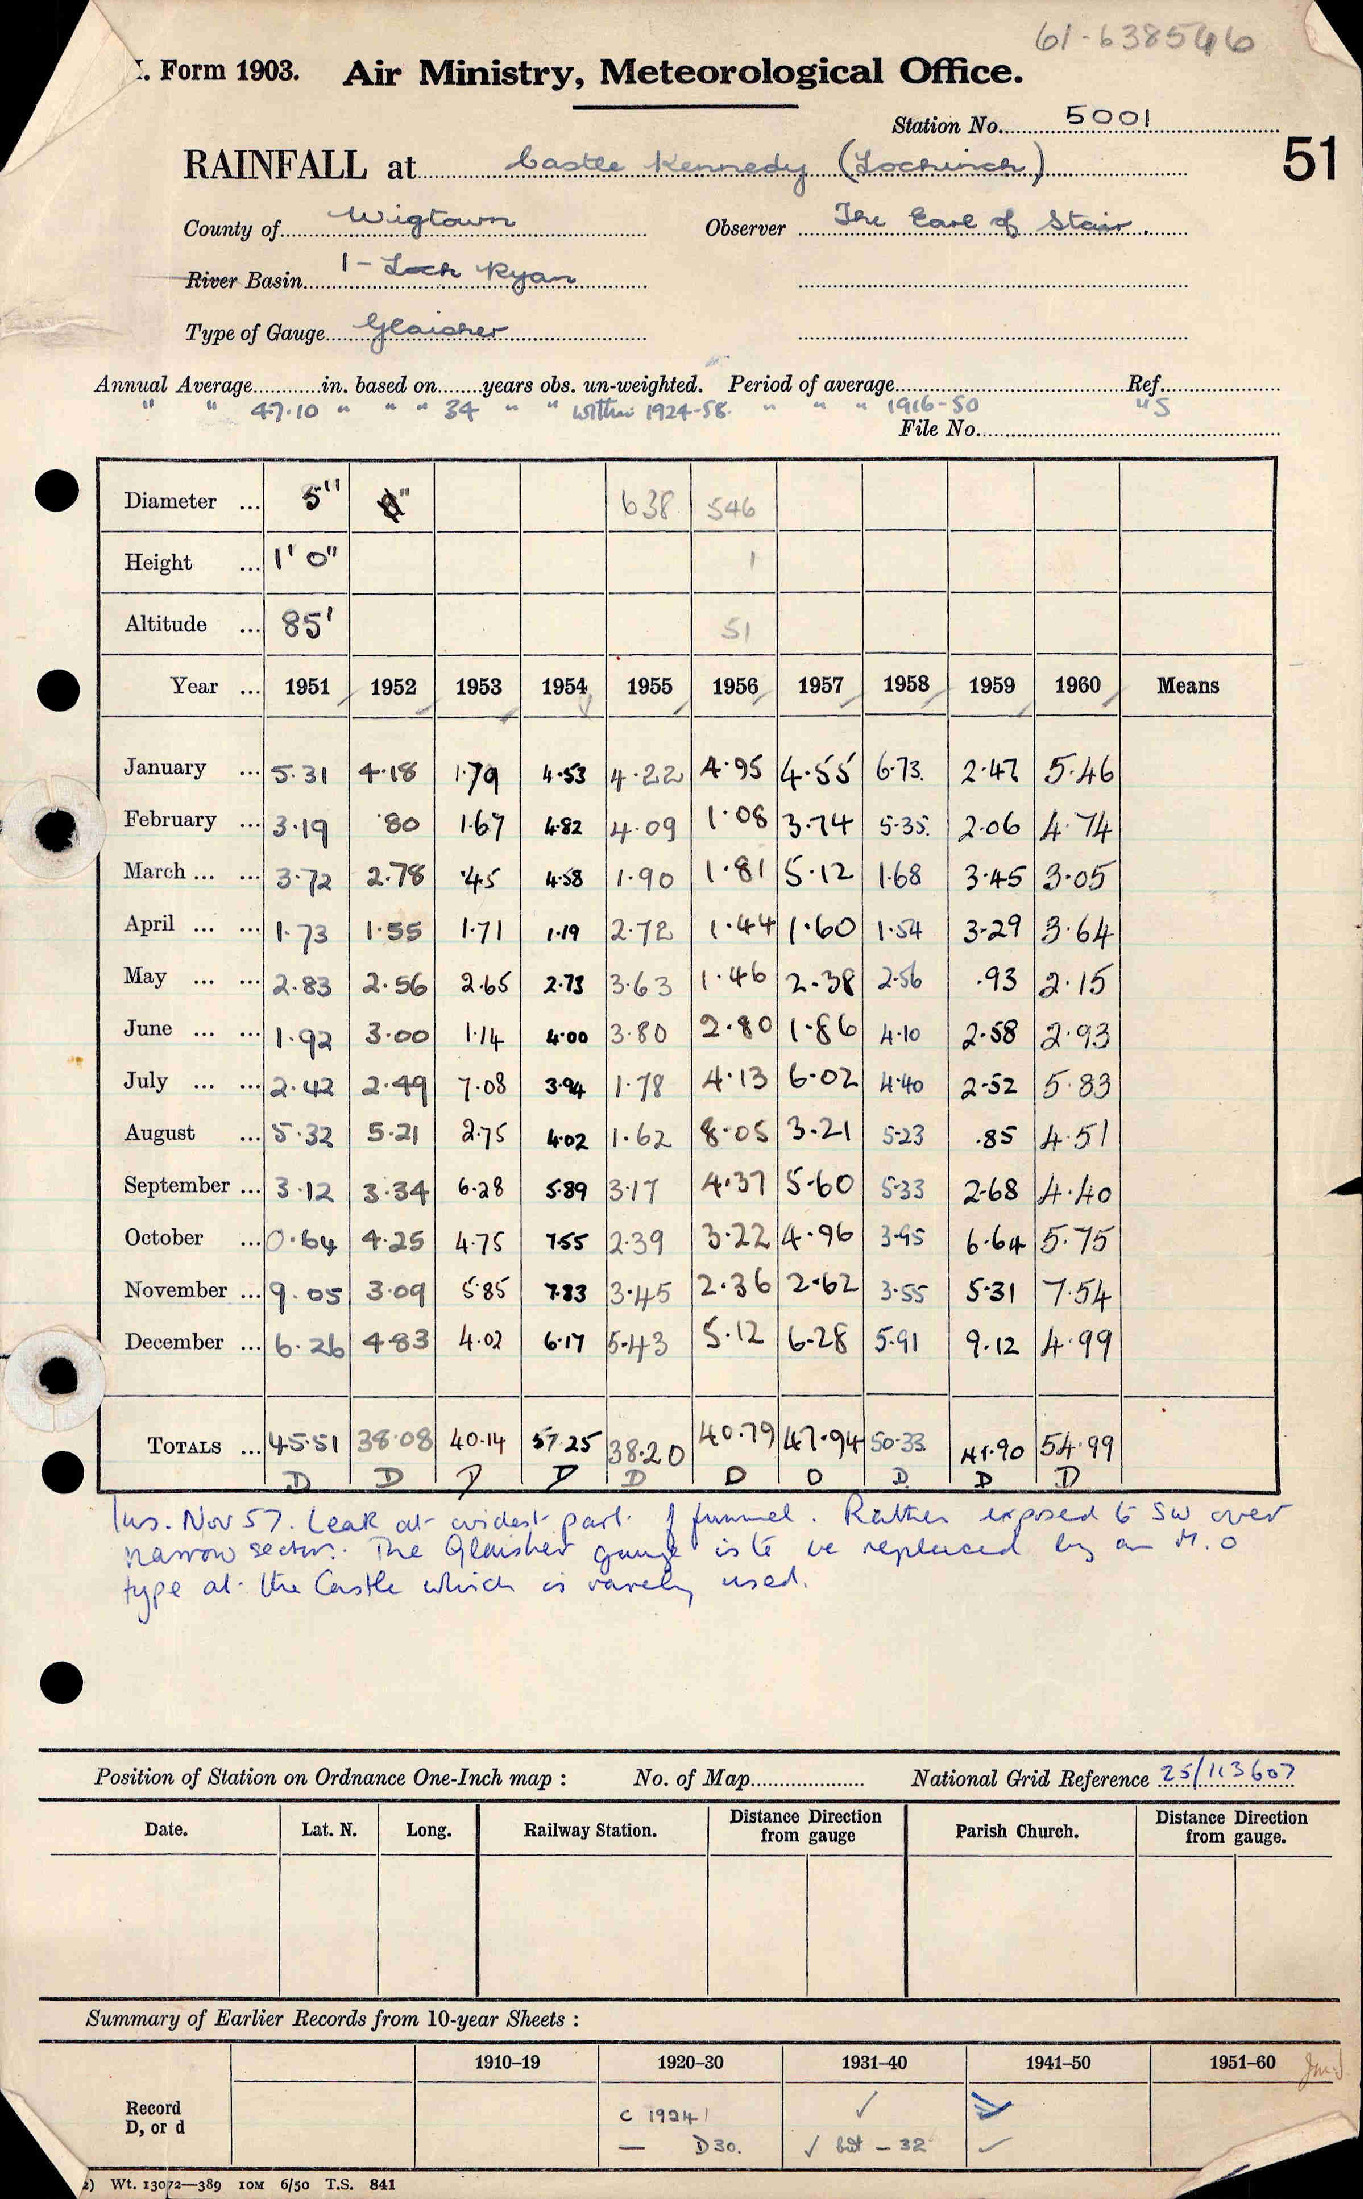 61-638546
I. Form 1903. Air Ministry, Meteorological Office.
Station No. 5001
RAINFALL at Castle Kennedy (Lochinch) 51
County of Wigtown Observer The Earl of Stair
River Basin 1 - Loch Ryan
Type of Gauge Glaisher
Annual Average in. based on years obs. un-weighted. Period of average Ref.
" " 47.10 " " " 34 " " within 1924-58. " " " 1916-50 "S
File No.
Diameter ... 5" 8" 638 546
Height ... 1' 0" 1
Altitude ... 85' 51
Year ... 1951 1952 1953 1954 1955 1956 1957 1958 1959 1960 Means
January ... 5.31 4.18 1.79 4.53 4.22 4.95 4.55 6.73. 2.47 5.46
February ... 3.19 .80 1.67 4.82 4.09 1.08 3.74 5.35. 2.06 4.74
March ... ... 3.72 2.78 .45 4.58 1.90 1.81 5.12 1.68 3.45 3.05
April ... ... 1.73 1.55 1.71 1.19 2.72 1.44 1.60 1.54 3.29 3.64
May ... ... 2.83 2.56 2.65 2.73 3.63 1.46 2.38 2.56 .93 2.15
June ... ... 1.92 3.00 1.14 4.00 3.80 2.80 1.86 4.10 2.58 2.93
July ... ... 2.42 2.49 7.08 3.94 1.78 4.13 6.02 4.40 2.52 5.83
August ... 5.32 5.21 2.75 4.02 1.62 8.05 3.21 5.23 .85 4.51
September ... 3.12 3.34 6.28 5.89 3.17 4.37 5.60 5.33 2.68 4.40
October ... 0.64 4.25 4.75 7.55 2.39 3.22 4.96 3.95 6.64 5.75
November ... 9.05 3.09 5.85 7.83 3.45 2.36 2.62 3.55 5.31 7.54
December ... 6.26 4.83 4.02 6.17 5.43 5.12 6.28 5.91 9.12 4.99
TOTALS ... 45.51 38.08 40.14 57.25 38.20 40.79 47.94 50.33 41.90 54.99
D D D D D D D D D D
Ins. Nov 57. Leak at widest part of funnel. Rather exposed to SW over
narrow sector. The Glaisher gauge is to be replaced by an M.O
type at the Castle which is rarely used.
Position of Station on Ordnance One-Inch map : No. of Map National Grid Reference 25/113607
Date. Lat. N. Long. Railway Station. Distance Direction from gauge Parish Church. Distance Direction from gauge.
Summary of Earlier Records from 10-year Sheets :
1910–19 1920–30 1931–40 1941–50 1951–60
Record c 1924 ✓
D, or d — D30. ✓ but - 32 ✓
Wt. 13072—389 10M 6/50 T.S. 841